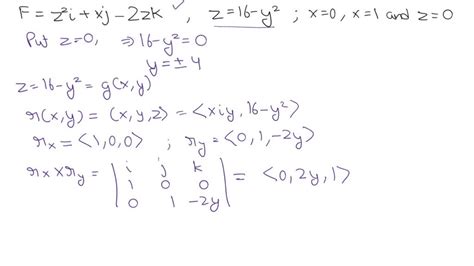 F = z²i + xj - 2zk ✓, z = 16 - y² ; x = 0, x = 1 and z = 0
Put z = 0, ⇒ 16 - y² = 0
y = ± 4
z = 16 - y² = g(x, y)
r(x, y) = (x, y, z) = <x, y, 16 - y²>
r_x = <1, 0, 0> ; r_y = <0, 1, -2y>
r_x X r_y = | i j k | = <0, 2y, 1>
1 0 0
0 1 -2y